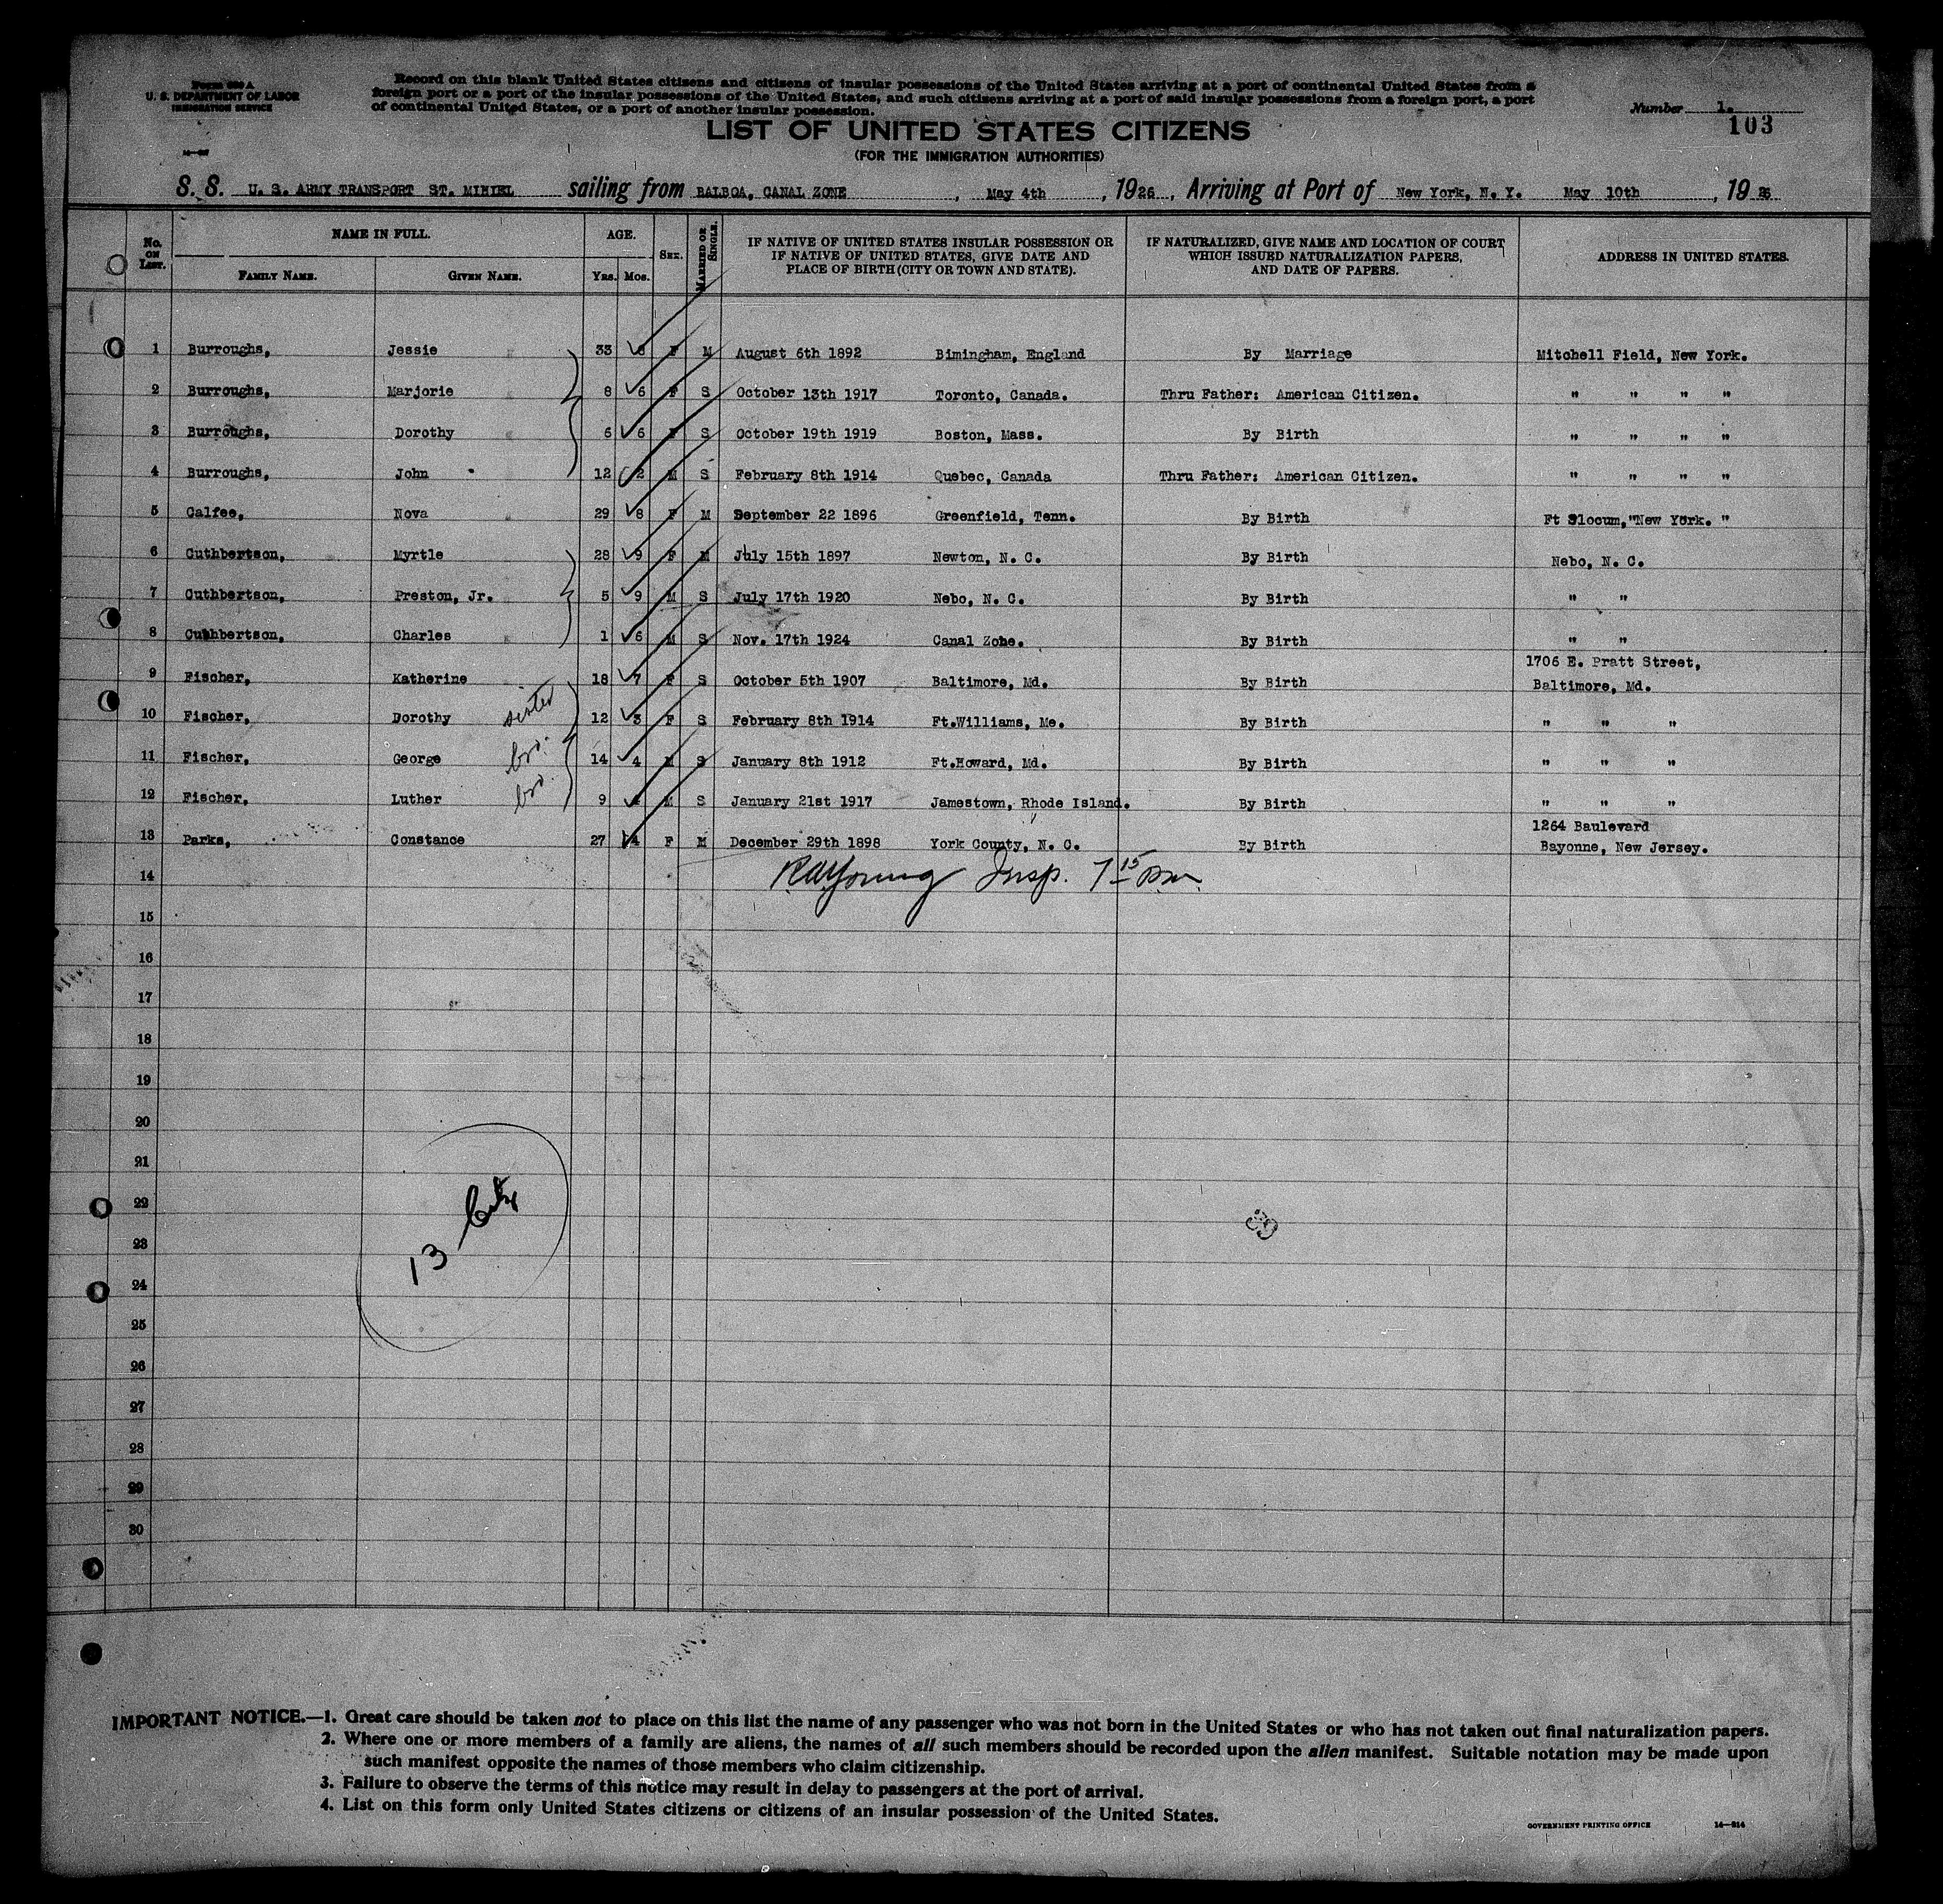 Form 630 A
U. S. DEPARTMENT OF LABOR
IMMIGRATION SERVICE
Record on this blank United States citizens and citizens of insular possessions of the United States arriving at a port of continental United States from a
foreign port or a port of the insular possessions of the United States, and such citizens arriving at a port of said insular possessions from a foreign port, a port
of continental United States, or a port of another insular possession.
Number 1.
103
LIST OF UNITED STATES CITIZENS
(FOR THE IMMIGRATION AUTHORITIES)
S. S. U. S. ARMY TRANSPORT ST. MIHIEL sailing from BALBOA, CANAL ZONE, May 4th, 1926, Arriving at Port of New York, N. Y. May 10th, 1926
No. ON LIST. NAME IN FULL. AGE. SEX. MARRIED OR SINGLE. IF NATIVE OF UNITED STATES INSULAR POSSESSION OR IF NATIVE OF UNITED STATES, GIVE DATE AND PLACE OF BIRTH (CITY OR TOWN AND STATE). IF NATURALIZED, GIVE NAME AND LOCATION OF COURT WHICH ISSUED NATURALIZATION PAPERS, AND DATE OF PAPERS. ADDRESS IN UNITED STATES.
FAMILY NAME. GIVEN NAME. YRS. MOS.
1 Burroughs, Jessie 33 F M August 6th 1892 Bimingham, England By Marriage Mitchell Field, New York.
2 Burroughs, Marjorie 8 6 F S October 13th 1917 Toronto, Canada. Thru Father: American Citizen. " " " "
3 Burroughs, Dorothy 6 6 F S October 19th 1919 Boston, Mass. By Birth " " " "
4 Burroughs, John 12 2 M S February 8th 1914 Quebec, Canada Thru Father: American Citizen. " " " "
5 Calfee, Nova 29 8 F M September 22 1896 Greenfield, Tenn. By Birth Ft Slocum,"New York. "
6 Cuthbertson, Myrtle 28 9 F M July 15th 1897 Newton, N. C. By Birth Nebo, N. C.
7 Cuthbertson, Preston, Jr. 5 9 M S July 17th 1920 Nebo, N. C. By Birth " "
8 Cuthbertson, Charles 1 6 M S Nov. 17th 1924 Canal Zone. By Birth " "
9 Fischer, Katherine 18 7 F S October 5th 1907 Baltimore, Md. By Birth 1706 E. Pratt Street, Baltimore, Md.
10 Fischer, Dorothy sister 12 3 F S February 8th 1914 Ft.Williams, Me. By Birth " " "
11 Fischer, George bro. 14 4 M S January 8th 1912 Ft.Howard, Md. By Birth " " "
12 Fischer, Luther bro. 9 M S January 21st 1917 Jamestown, Rhode Island. By Birth " " "
13 Parks, Constance 27 4 F M December 29th 1898 York County, N. C. By Birth 1264 Baulevard Bayonne, New Jersey.
14 RAYoung Insp. 7 15 pm
15
16
17
18
19
20
21
22
23
24
25
26
27
28
29
30
13
39
IMPORTANT NOTICE.—1. Great care should be taken not to place on this list the name of any passenger who was not born in the United States or who has not taken out final naturalization papers.
2. Where one or more members of a family are aliens, the names of all such members should be recorded upon the alien manifest. Suitable notation may be made upon
such manifest opposite the names of those members who claim citizenship.
3. Failure to observe the terms of this notice may result in delay to passengers at the port of arrival.
4. List on this form only United States citizens or citizens of an insular possession of the United States.
GOVERNMENT PRINTING OFFICE 14—914